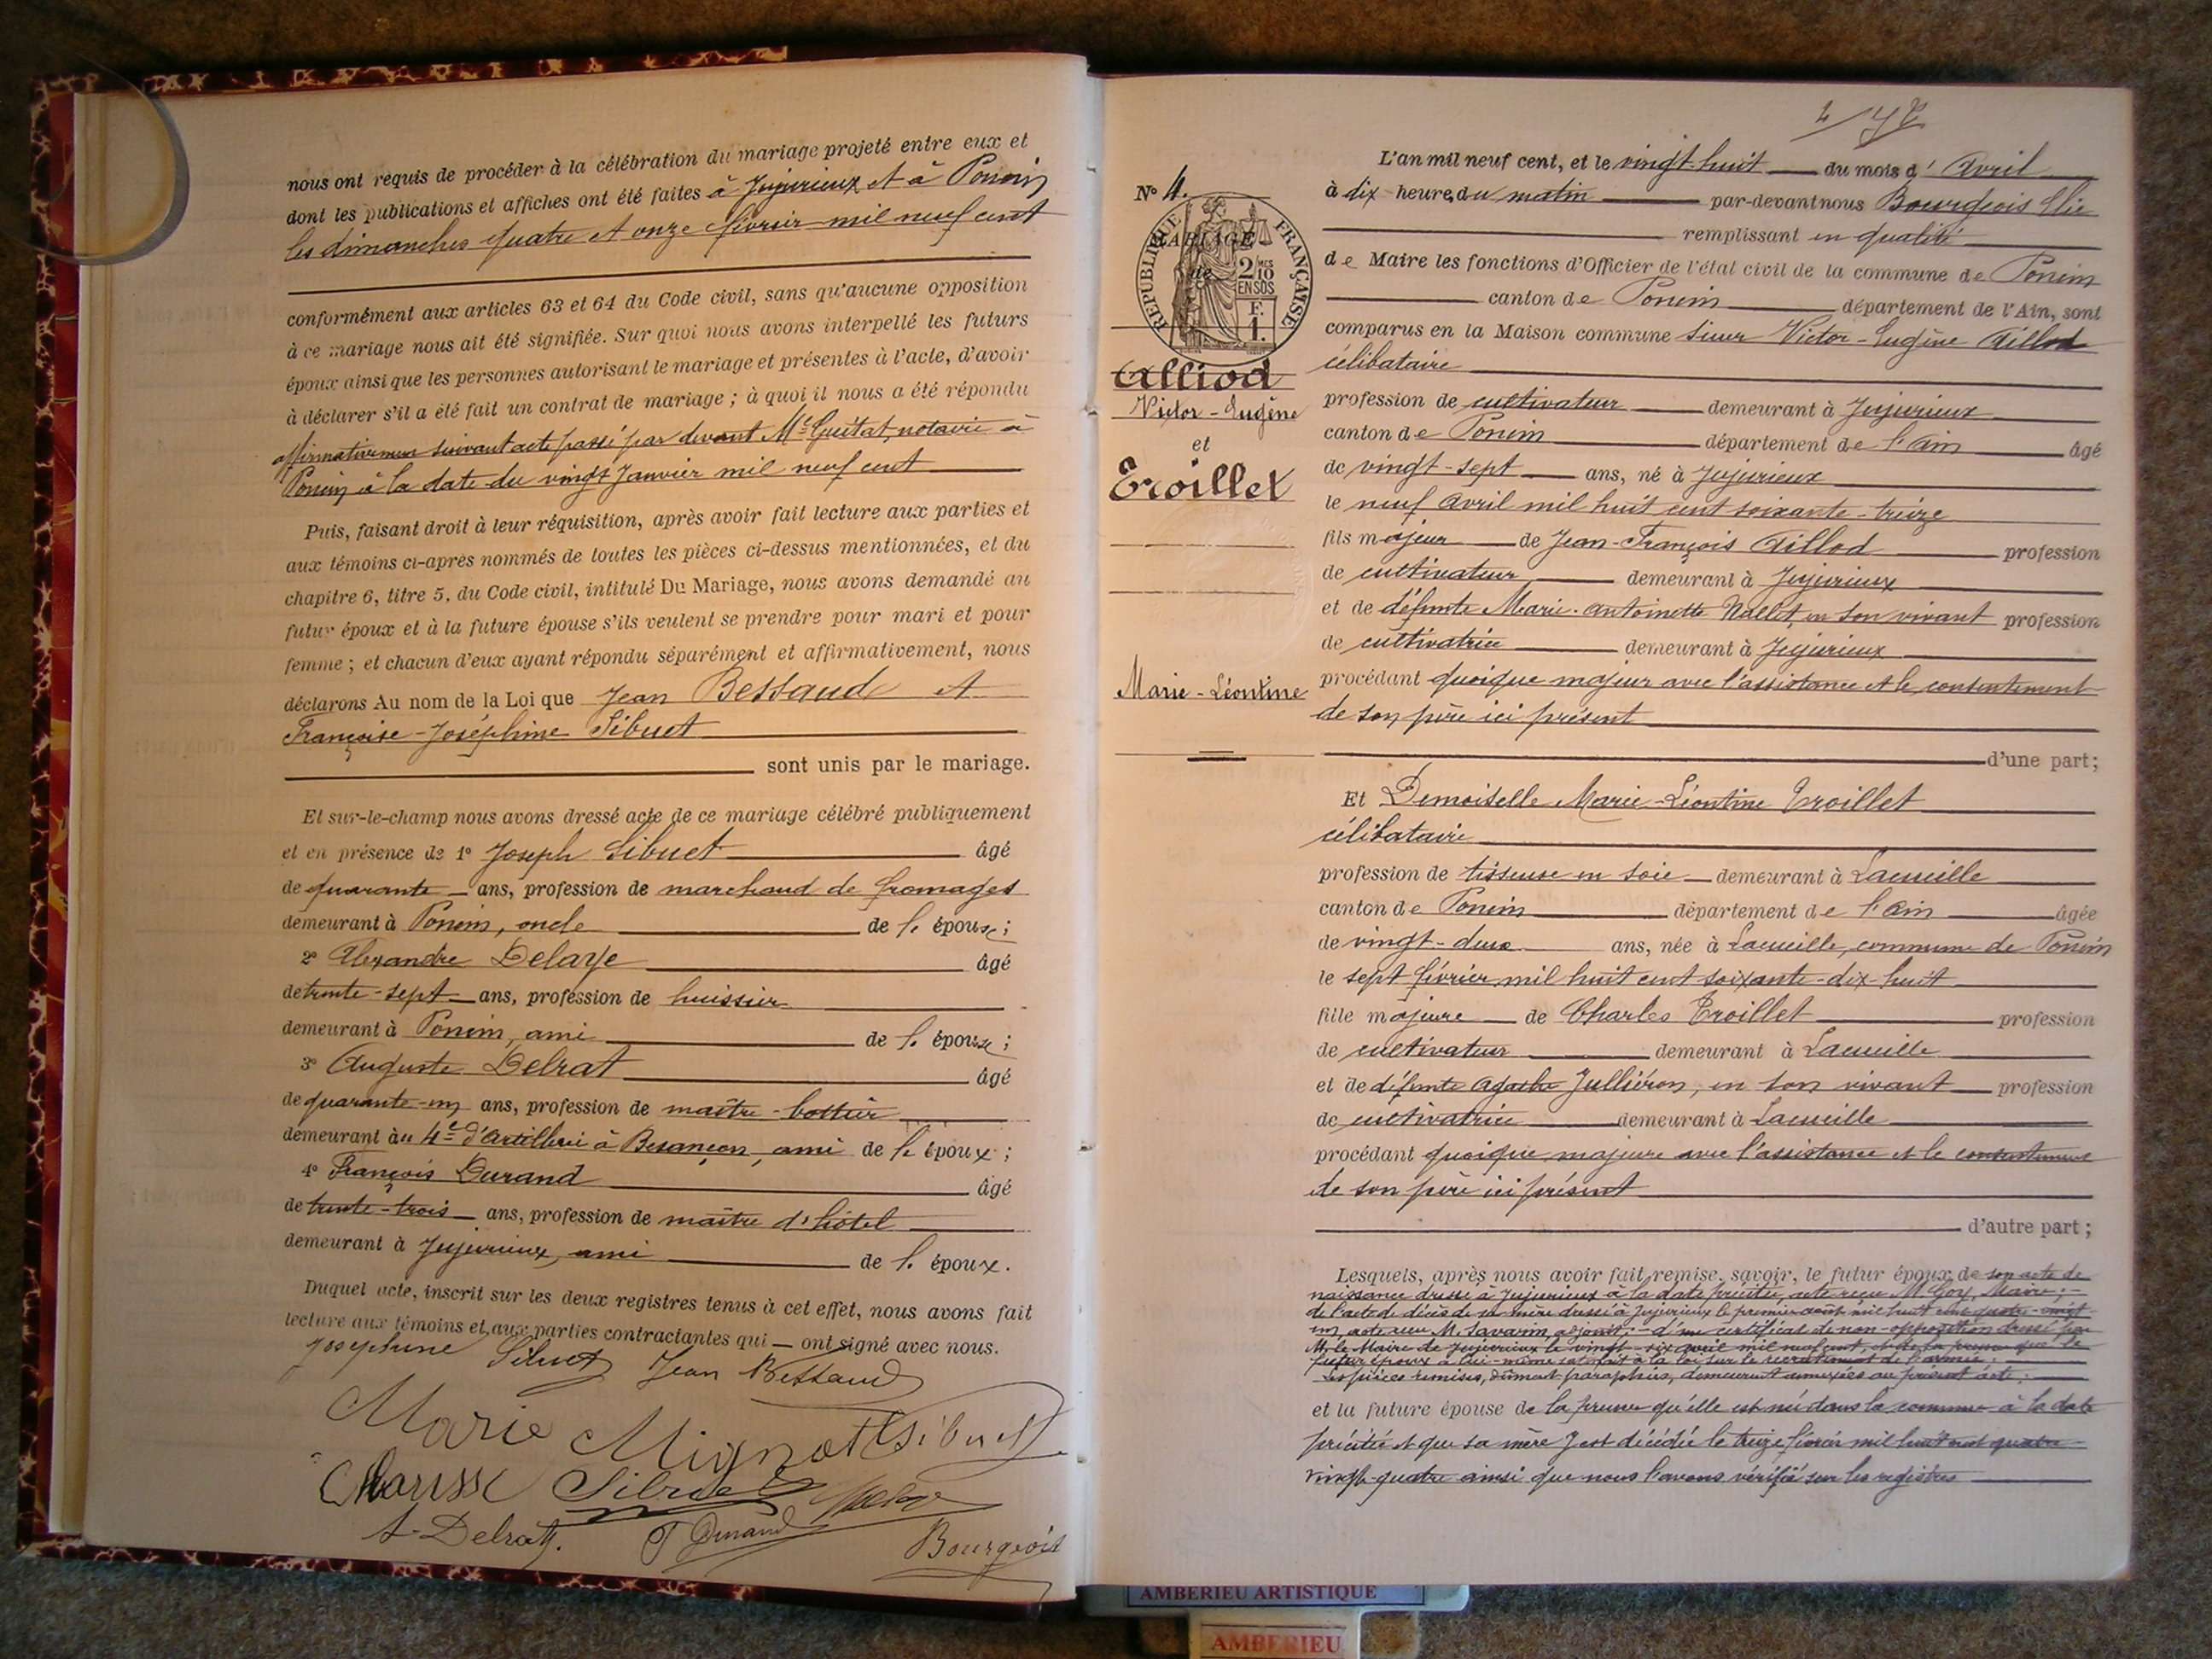 nous ont requis de procéder à la célébration du mariage projeté entre eux et
dont les publications et affiches ont été faites à Jujurieux et à Poncin
les dimanches quatre et onze février mil neuf cent
conformément aux articles 63 et 64 du Code civil, sans qu'aucune opposition
à ce mariage nous ait été signifiée. Sur quoi nous avons interpellé les futurs
époux ainsi que les personnes autorisant le mariage et présentes à l'acte, d'avoir
à déclarer s'il a été fait un contrat de mariage ; à quoi il nous a été répondu
affirmativement suivant acte passé par devant Me Guétat, notaire à
Poncin à la date du vingt Janvier mil neuf cent
Puis, faisant droit à leur réquisition, après avoir fait lecture aux parties et
aux témoins ci-après nommés de toutes les pièces ci-dessus mentionnées, et du
chapitre 6, titre 5, du Code civil, intitulé Du Mariage, nous avons demandé au
futur époux et à la future épouse s'ils veulent se prendre pour mari et pour
femme ; et chacun d'eux ayant répondu séparément et affirmativement, nous
déclarons Au nom de la Loi que Jean Bessaud et
Françoise-Joséphine Sibuet
sont unis par le mariage.
Et sur-le-champ nous avons dressé acte de ce mariage célébré publiquement
et en présence de 1° Joseph Sibuet âgé
de quarante ans, profession de marchand de fromages
demeurant à Poncin, oncle de l. épouse ;
2° Alexandre Delaye âgé
de trente-sept ans, profession de huissier
demeurant à Poncin, ami de l. épouse ;
3° Auguste Delrat âgé
de quarante-un ans, profession de maître-bottier
demeurant au 4e d'Artillerie à Besançon, ami de l. époux ;
4° François Durand âgé
de trente-trois ans, profession de maître d'hôtel
demeurant à Jujurieux, ami de l. époux.
Duquel acte, inscrit sur les deux registres tenus à cet effet, nous avons fait
lecture aux témoins et aux parties contractantes qui ont signé avec nous.
Josephine Sibuet Jean Bessaud
Marie Mignot Sibuet
Sibuet Delaye
A. Delrat F Durand Bourgeois
4
N° 4.
MARIAGE
de
RÉPUBLIQUE FRANÇAISE
2/10 MES EN SUS
F. 1.
Alliod
Victor-Eugène
et
Troillet
Marie-Léontine
L'an mil neuf cent, et le vingt-huit du mois d'Avril
à dix heures du matin par-devant nous Bourgeois Elie
remplissant en qualité
de Maire les fonctions d'Officier de l'état civil de la commune de Poncin
canton de Poncin département de l'Ain, sont
comparus en la Maison commune sieur Victor-Eugène Aillod
célibataire
profession de cultivateur demeurant à Jujurieux
canton de Poncin département de l'Ain âgé
de vingt-sept ans, né à Jujurieux
le neuf Avril mil huit cent soixante-treize
fils majeur de Jean-François Aillod profession
de cultivateur demeurant à Jujurieux
et de défunte Marie-Antoinette Nallet, en son vivant profession
de cultivatrice demeurant à Jujurieux
procédant quoique majeur avec l'assistance et le consentement
de son père ici présent
d'une part ;
Et Demoiselle Marie-Léontine Troillet
célibataire
profession de tisseuse en soie demeurant à Lacueille
canton de Poncin département de l'Ain âgée
de vingt-deux ans, née à Lacueille, commune de Poncin
le sept février mil huit cent soixante-dix-huit
fille majeure de Charles Troillet profession
de cultivateur demeurant à Lacueille
et de défunte Agathe Julliéron, en son vivant profession
de cultivatrice demeurant à Lacueille
procédant quoique majeure avec l'assistance et le consentement
de son père ici présent
d'autre part ;
Lesquels, après nous avoir fait remise, savoir, le futur époux de son acte de
naissance dressé à Jujurieux à la date précitée, acte reçu M. Goy, Maire ;
de l'acte de décès de sa mère dressé à Jujurieux le premier août mil huit cent quatre-vingt
un, acte reçu M. Savarin, adjoint ; d'un certificat de non-opposition dressé par
M. le Maire de Jujurieux le vingt-six avril mil neuf cent, et de la preuve que le
futur époux a lui-même satisfait à la loi sur le recrutement de l'armée ;
Les pièces remises, dûment paraphées, demeurent annexées au présent acte ;
et la future épouse de la preuve qu'elle est née dans la commune à la date
précitée et que sa mère y est décédée le treize février mil huit cent quatre
vingt-quatre ainsi que nous l'avons vérifié sur les registres
AMBERIEU ARTISTIQUE
AMBERIEU